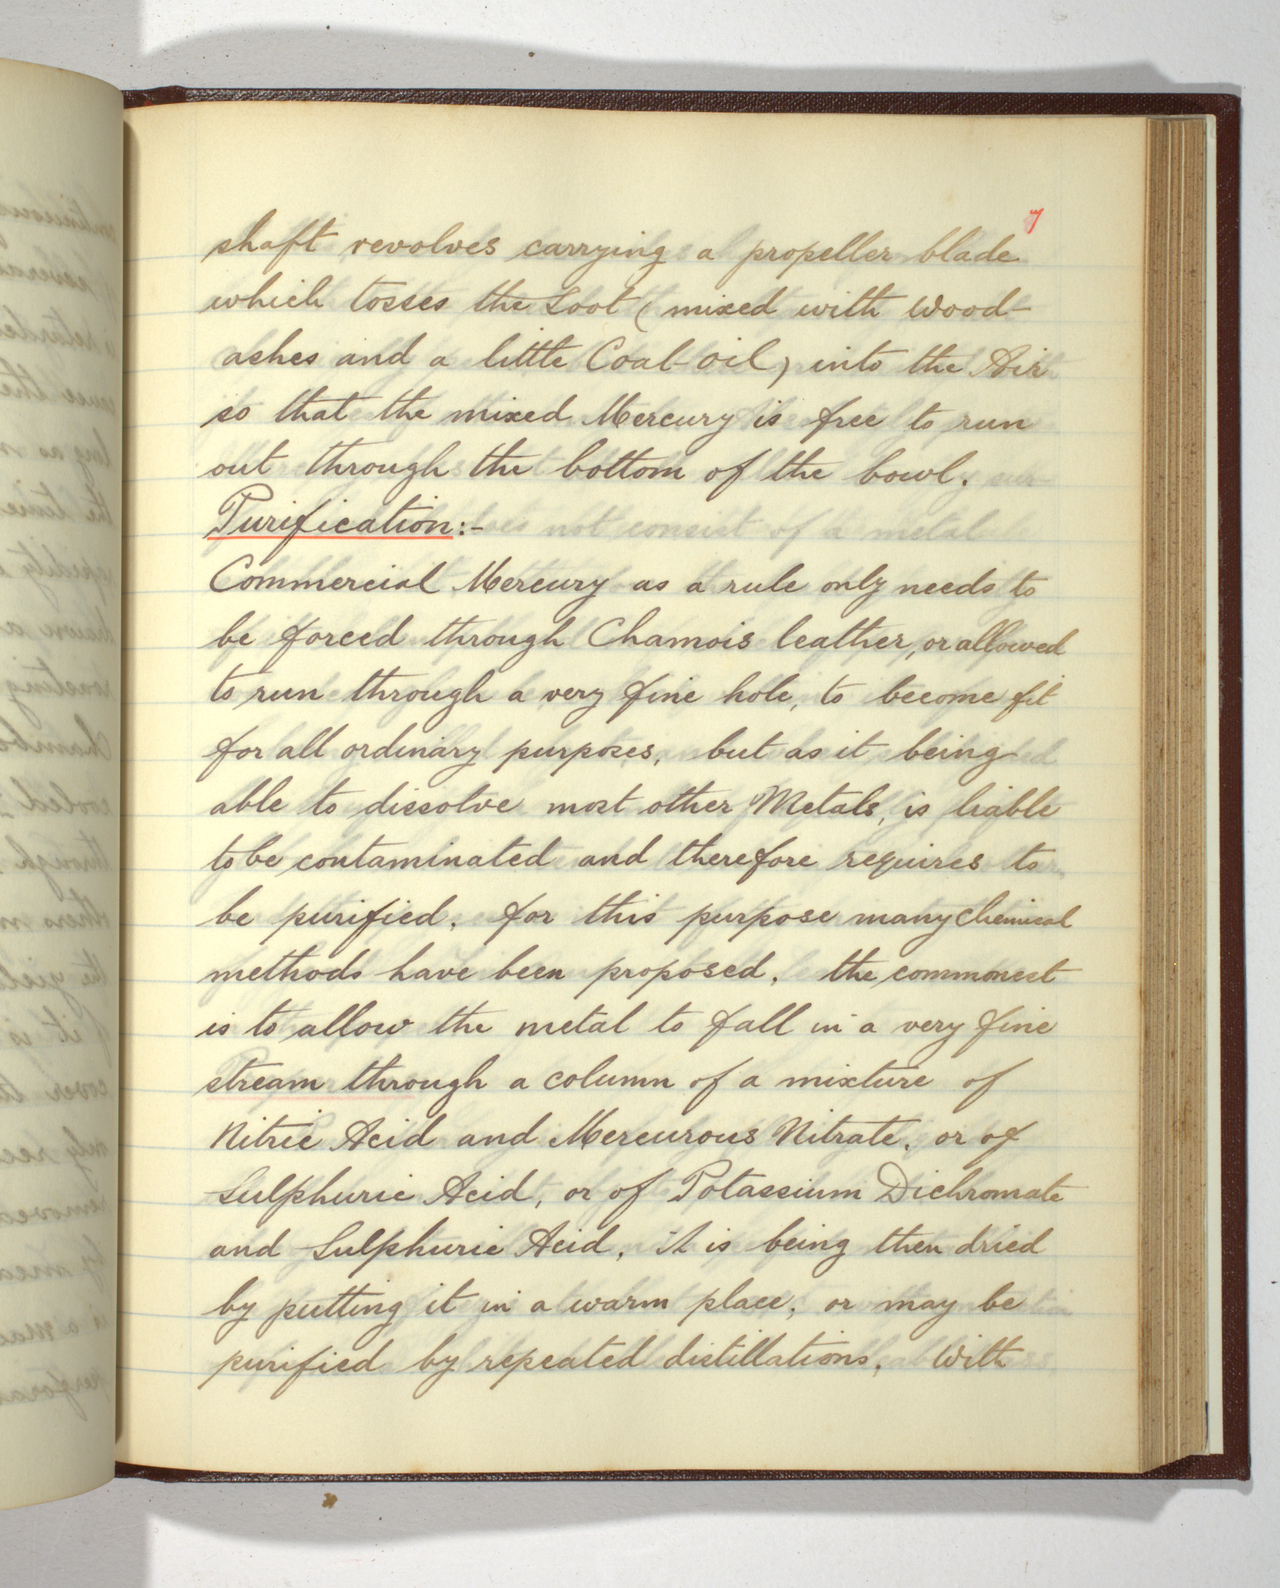 7
shaft revolves carrying a propeller blade
which tosses the Soot (mixed with Wood-
ashes and a little Coal-oil) into the Air
so that the mixed Mercury is free to run
out through the bottom of the bowl.
Purification:-
Commercial Mercury as a rule only needs to
be forced through Chamois leather, or allowed
to run through a very fine hole, to become fit
for all ordinary purposes, but as it being
able to dissolve most other Metals, is liable
to be contaminated and therefore requires to
be purified. For this purpose many Chemical
methods have been proposed, the commonest
is to allow the metal to fall in a very fine
stream through a column of a mixture of
Nitric Acid and Mercurous Nitrate, or of
Sulphuric Acid, or of Potassium Dichromate
and Sulphuric Acid, it is being then dried
by putting it in a warm place, or may be
purified by repeated distillations, With